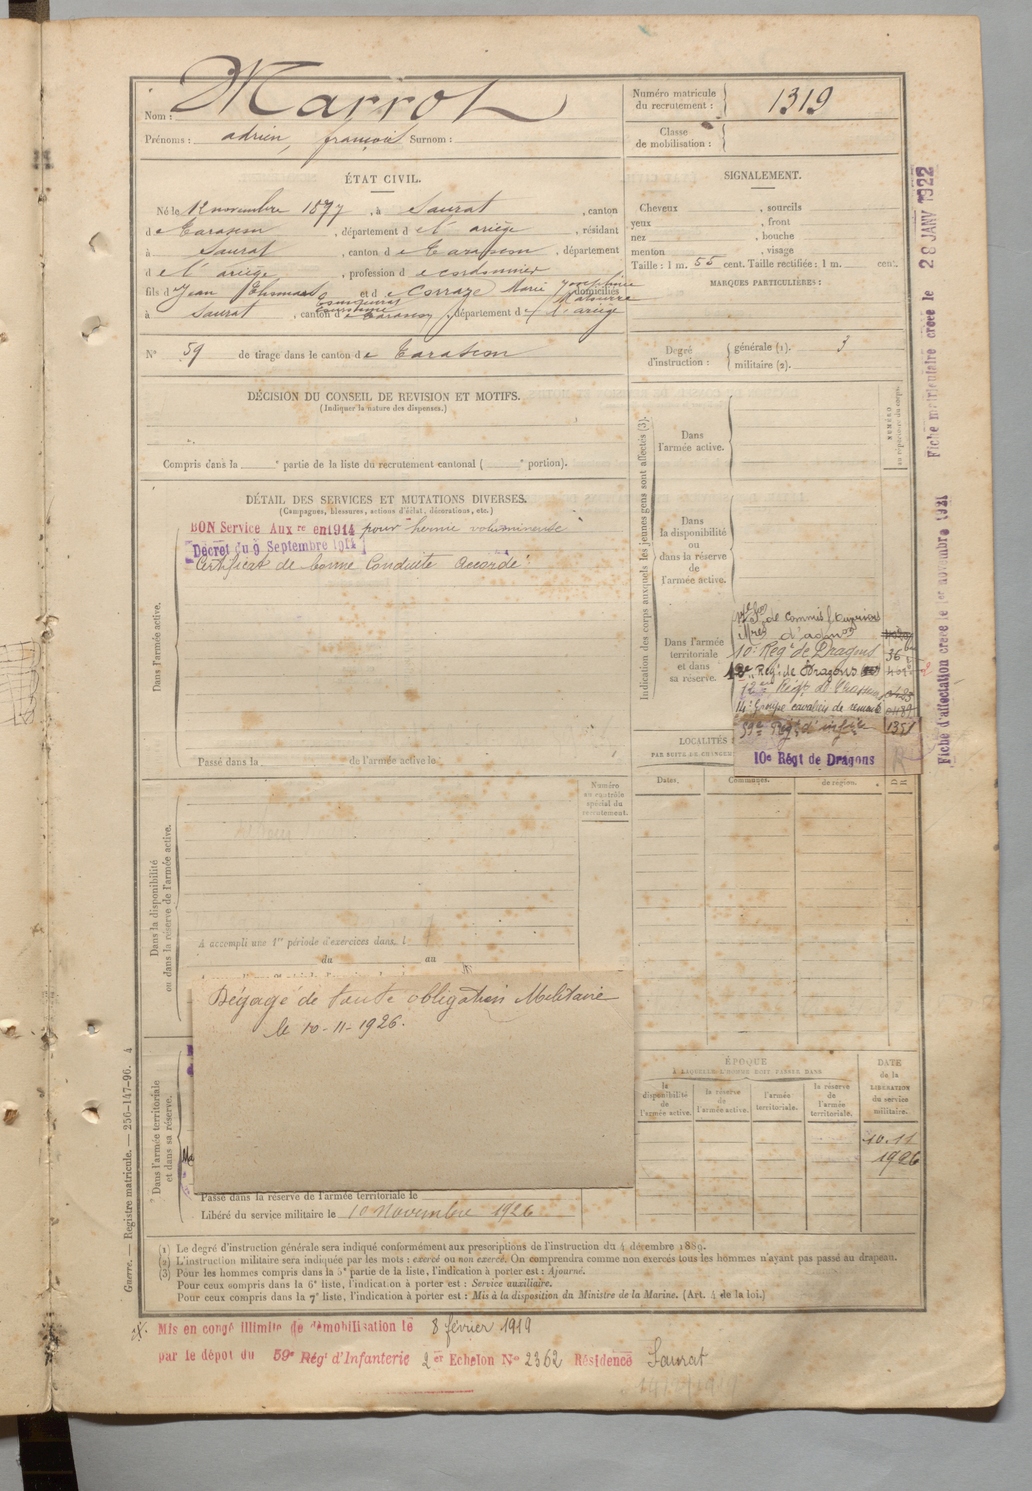 Nom : Marrot
Prénoms : adrien, françois Surnom :
Numéro matricule
du recrutement : 1319
Classe
de mobilisation :
ÉTAT CIVIL.
Né le 12 novembre 1877, à Saurat, canton
de Tarascon, département de l'ariège, résidant
à Saurat, canton de Tarascon, département
de l'ariège, profession de cordonnier
fils de Jean et de Corraze Marie Josephine
domiciliés
à Saurat, canton de Tarascon, département de l'ariège
N° 59 de tirage dans le canton de Tarascon
SIGNALEMENT.
Cheveux , sourcils
yeux , front
nez , bouche
menton , visage
Taille : 1 m. 55 cent. Taille rectifiée : 1 m. cent.
MARQUES PARTICULIÈRES :
Degré
d'instruction :
générale (1). 3
militaire (2).
DÉCISION DU CONSEIL DE REVISION ET MOTIFS.
(Indiquer la nature des dispenses.)
Compris dans la e partie de la liste du recrutement cantonal ( e portion).
DÉTAIL DES SERVICES ET MUTATIONS DIVERSES.
(Campagnes, blessures, actions d'éclat, décorations, etc.)
BON Service Aux re en 1914 pour hernie volumineuse
Décret du 9 Septembre 1914
Certificat de bonne Conduite Accordé
Dans l'armée active.
Passé dans la de l'armée active le
Indication des corps auxquels les jeunes gens sont affectés (3).
NUMÉRO
au répertoire du corps.
Dans
l'armée active.
Dans
la disponibilité
ou
dans la réserve
de
l'armée active.
Dans l'armée
territoriale
et dans
sa réserve.
de Commis
10e Régt de Dragons 36
Régt de Dragons
14e Groupe cavaliers de remonte
59e Régt d'infie 1351
10e Régt de Dragons
LOCALITÉS
Dates. Communes. de région.
Dans la disponibilité
ou dans la réserve de l'armée active.
Numéro
au contrôle
spécial du
recrutement.
A accompli une 1re période d'exercices dans l
du au
Dégagé de toute obligation Militaire
le 10-11-1926.
Dans l'armée territoriale
et dans sa réserve.
Passé dans la réserve de l'armée territoriale le
Libéré du service militaire le 10 Novembre 1926
ÉPOQUE
À LAQUELLE L'HOMME DOIT PASSER DANS
la
disponibilité
de
l'armée active.
la réserve
de
l'armée active.
l'armée
territoriale.
la réserve
de
l'armée
territoriale.
DATE
de la
LIBÉRATION
du service
militaire.
10.11
1926
(1) Le degré d'instruction générale sera indiqué conformément aux prescriptions de l'instruction du 4 décembre 1889.
(2) L'instruction militaire sera indiquée par les mots : exercé ou non exercé. On comprendra comme non exercés tous les hommes n'ayant pas passé au drapeau.
(3) Pour les hommes compris dans la 5e partie de la liste, l'indication à porter est : Ajourné.
Pour ceux compris dans la 6e liste, l'indication à porter est : Service auxiliaire.
Pour ceux compris dans la 7e liste, l'indication à porter est : Mis à la disposition du Ministre de la Marine. (Art. 4 de la loi.)
Guerre. — Registre matricule. — 256-147-96. 4
Mis en congé illimité de démobilisation le 8 février 1919
par le dépot du 59e Régt d'Infanterie 2e Echelon N° 2362 Résidence Saurat
Fiche matriculaire créée le 28 JANV 1922
Fiche d'affectation créée le 1er novembre 1921